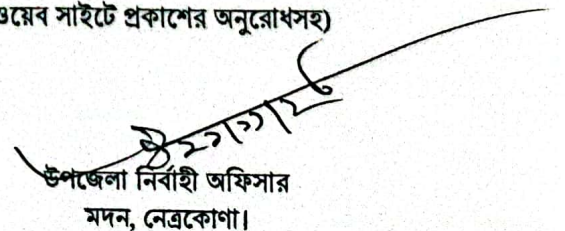 ওয়েব সাইটে প্রকাশের অনুরোধসহ)
উপজেলা নির্বাহী অফিসার
মদন, নেত্রকোণা।